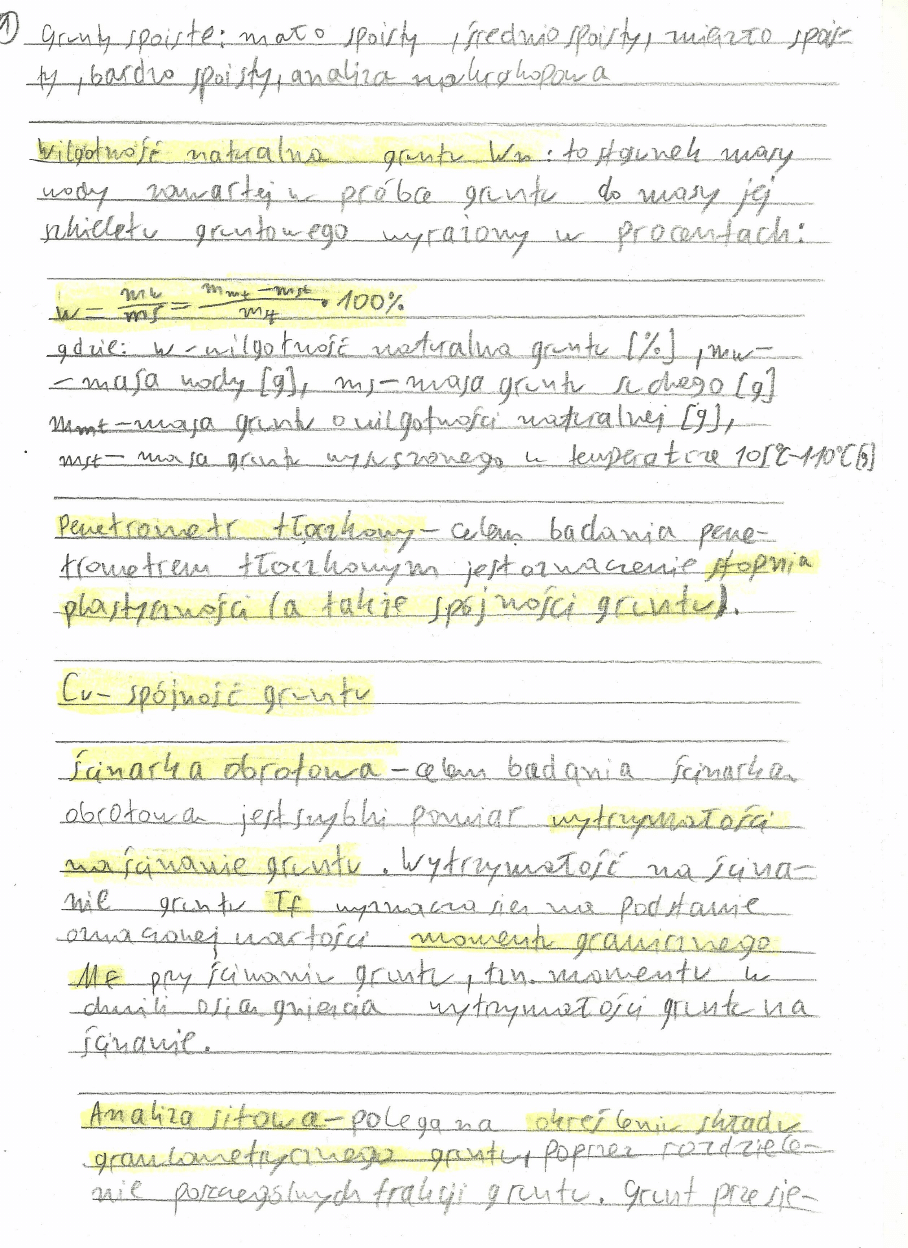 1) Grunty spoiste: mało spoisty, średnio spoisty, zwięzło spois-
ty, bardzo spoisty, analiza makroskopowa
Wilgotność naturalna gruntu Wn: to stosunek masy
wody zawartej w próbce gruntu do masy jej
szkieletu gruntowego wyrażony w procentach:
w = mw/ms = (mmt - mst)/mst · 100%
gdzie: w - wilgotność naturalna gruntu [%], mw-
- masa wody [g], ms - masa gruntu suchego [g]
mmt - masa gruntu o wilgotności naturalnej [g],
mst - masa gruntu wysuszonego w temperaturze 105°C-110°C [g]
Penetrometr tłoczkowy - celem badania pene-
trometrem tłoczkowym jest oznaczenie stopnia
plastyczności (a także spójności gruntu).
Cu - spójność gruntu
Ścinarka obrotowa - celem badania ścinarka
obrotowa jest szybki pomiar wytrzymałości
na ścinanie gruntu. Wytrzymałość na ścina-
nie gruntu τf wyznacza się na podstawie
oznaczonej wartości momentu granicznego
Mf przy ścinaniu gruntu, tzn. momentu w
chwili osiągnięcia wytrzymałości gruntu na
ścinanie.
Analiza sitowa - polega na określeniu składu
granulometrycznego gruntu, poprzez rozdziele-
nie poszczególnych frakcji gruntu. Grunt przesie-